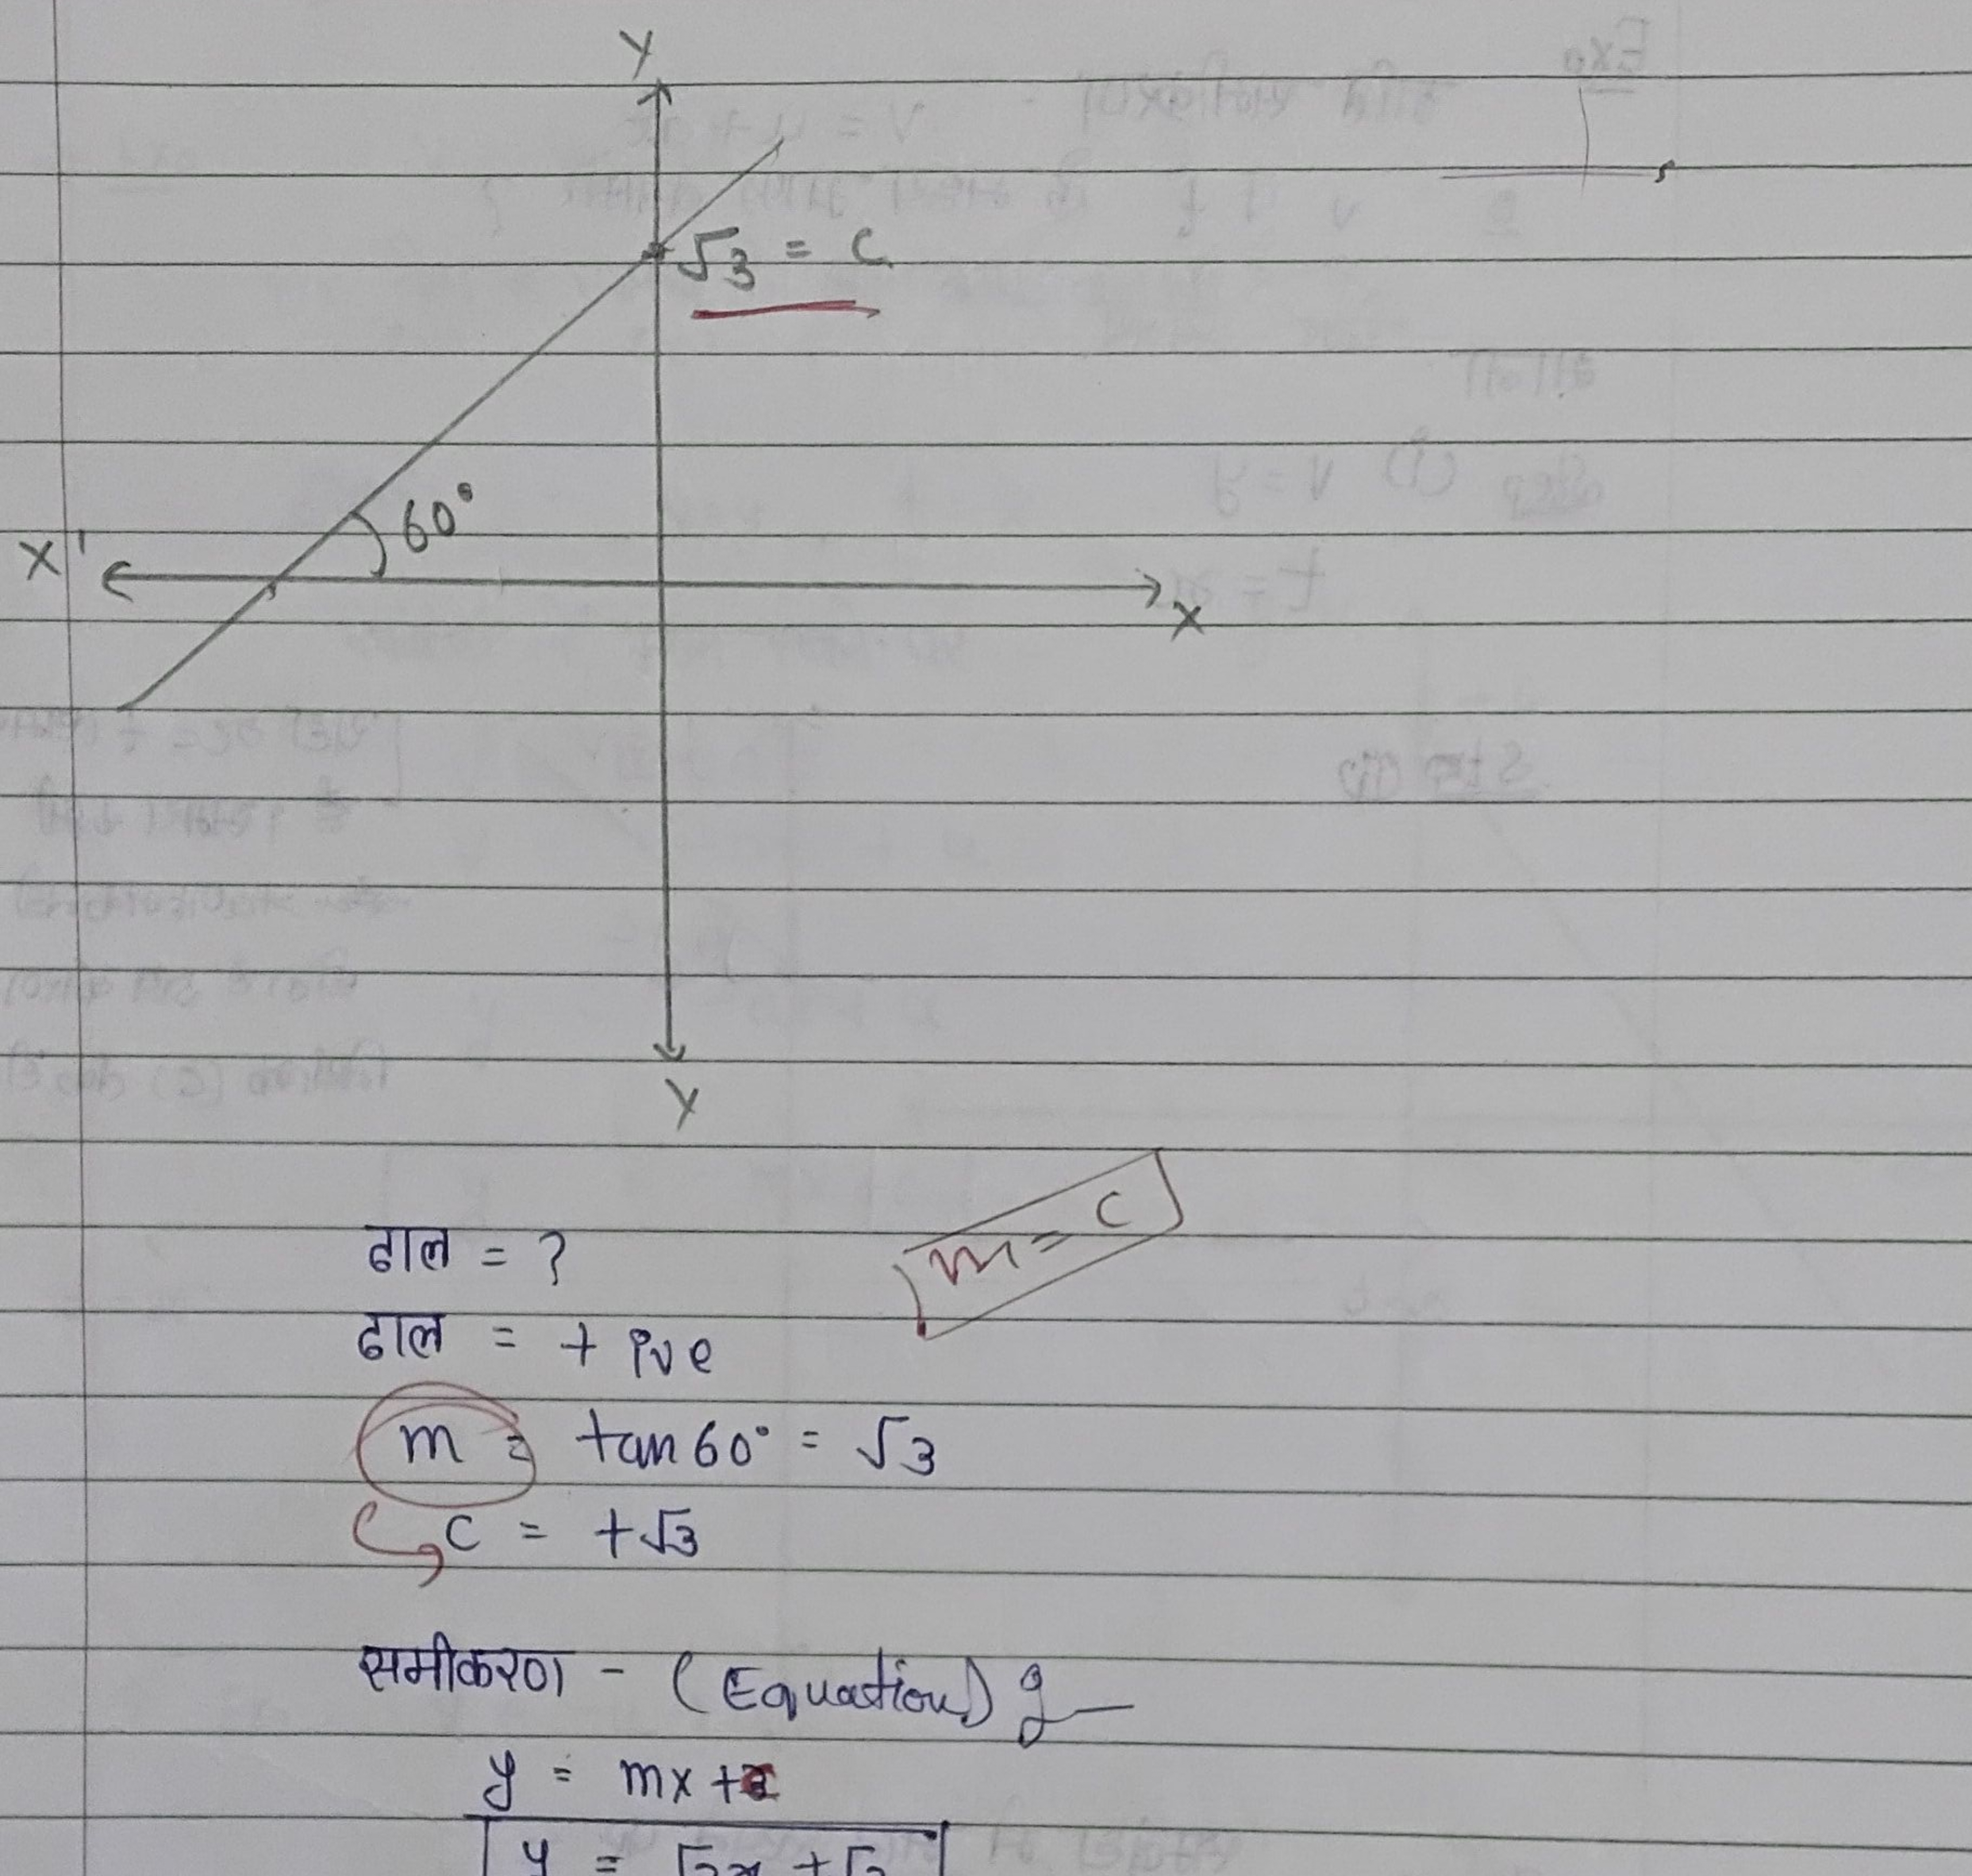 Y
√3 = C
60°
X'
X
Y
m = C
ढाल = ?
ढाल = + ive
m = tan 60° = √3
C = +√3
समीकरण - (Equation)
y = mx + c
y = √3x + √3